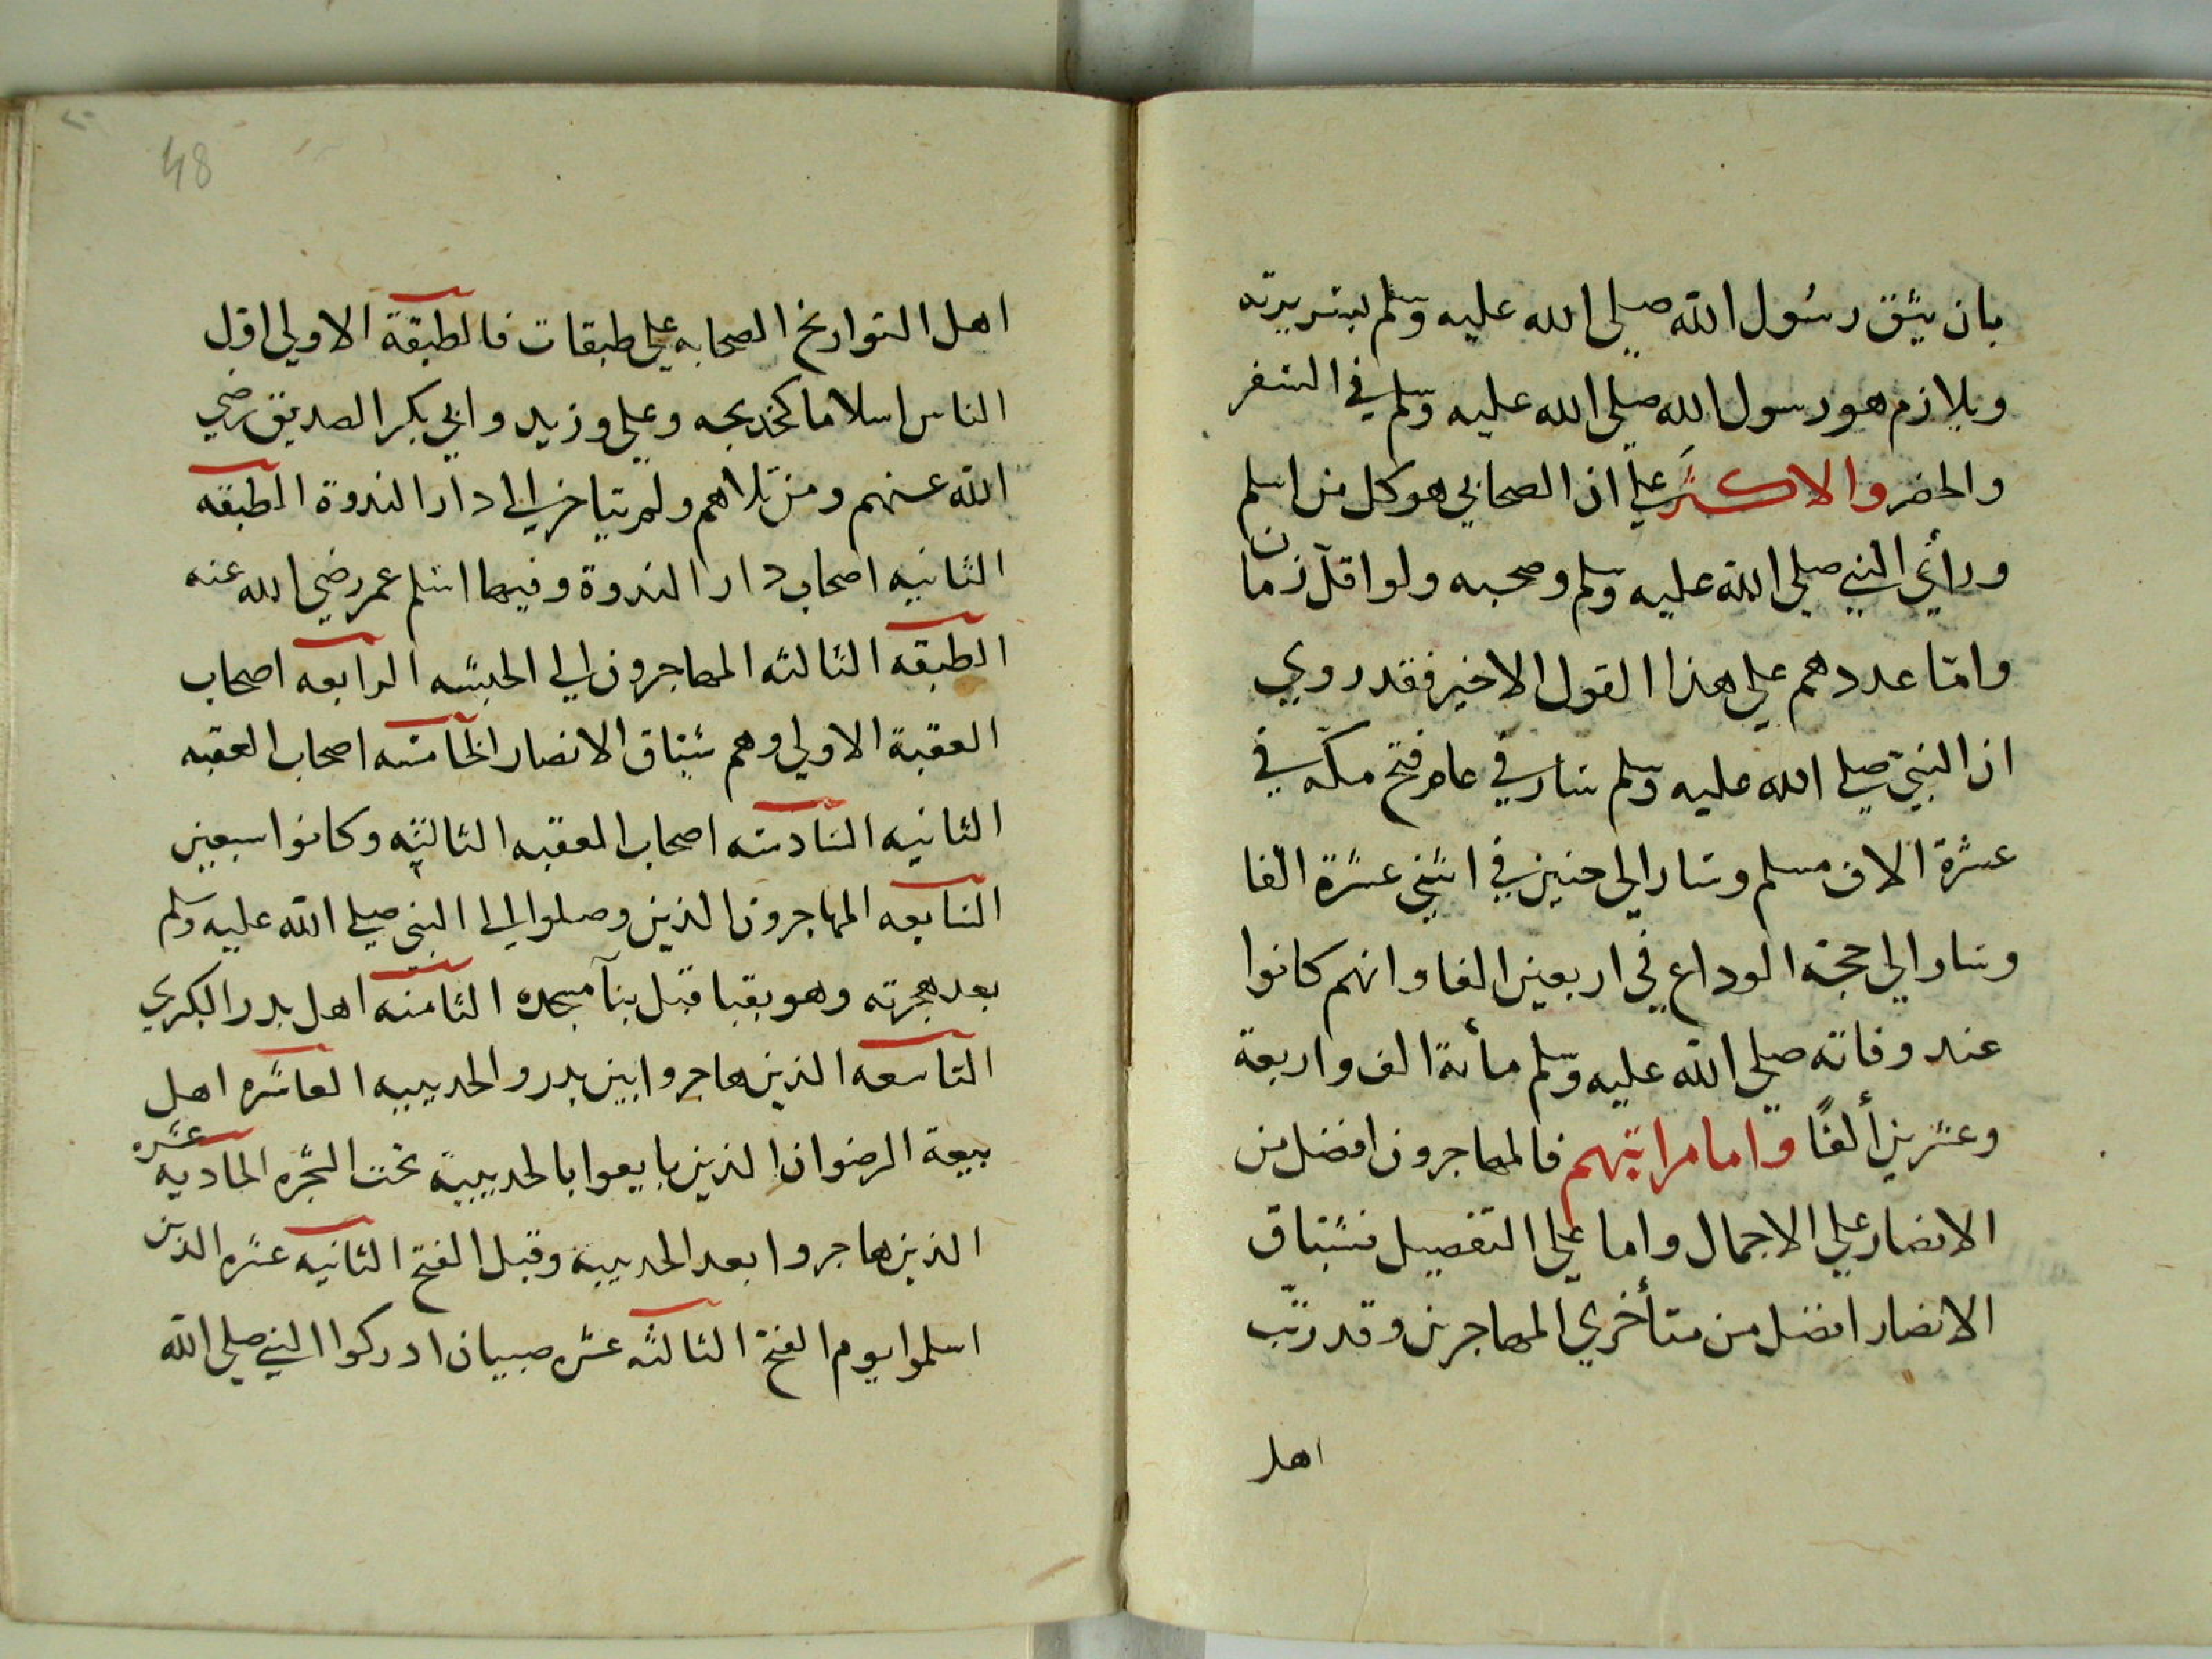 بان يثق رسول الله صلي الله عليه وسلم بسريرته
ويلازم هو رسول الله صلي الله عليه وسلم في السفر
والحضر والاكثر علي ان الصحابي هو كل من اسلم
ورأي النبي صلي الله عليه وسلم وصحبه ولو اقل زمان
وامّا عددهم علي هذا القول الاخير فقد روي
ان النبي صلي الله عليه وسلم سار في عام فتح مكّه في
عشرة الاف مسلم وسار الي حنين في اثني عشرة الفا
وسار الي حجة الوداع في اربعين الفا وانهم كانوا
عند وفاته صلي الله عليه وسلم مأىة الف واربعة
وعشرين ألفًا واما مراتبهم فالمهاجرون افضل من
الانصار علي الاجمال واما علي التفصيل فسّباق
الانصار افضل من متأخري المهاجرين وقد رتّب
اهل
48
اهل التواريخ الصحابه علي طبقات فالطبقة الاولي اوّل
الناس اسلاما كخديجه وعلي وزيد وابي بكر الصديق رضي
الله عنهم ومن تلاهم ولم يتاخر الي دار الندوة الطبقه
الثانيه اصحاب دار الندوة وفيها اسلم عمر رضي الله عنه
الطبقه الثالثه المهاجرون الي الحبشه الرابعه اصحاب
العقبة الاولي وهم سّباق الانصار الخامسه اصحاب العقبه
الثانيه السادسه اصحاب العقبه الثالثه وكانوا سبعين
السابعه المهاجرون الذين وصلوا الي النبي صلي الله عليه وسلم
بعد هجرته وهو بقبا قبل بنآ مسجده الثامنه اهل بدر الكبري
التاسعه الذين هاجروا بين بدر والحديبيه العاشره اهل
بيعة الرضوان الذين بايعوا بالحديبية تحت الشجره الحاديه عشره
الذين هاجروا بعد الحديبية وقبل الفتح الثانيه عشره الذين
اسلموا يوم الفتح الثالثه عشره صبيان ادركوا النبي صلي الله